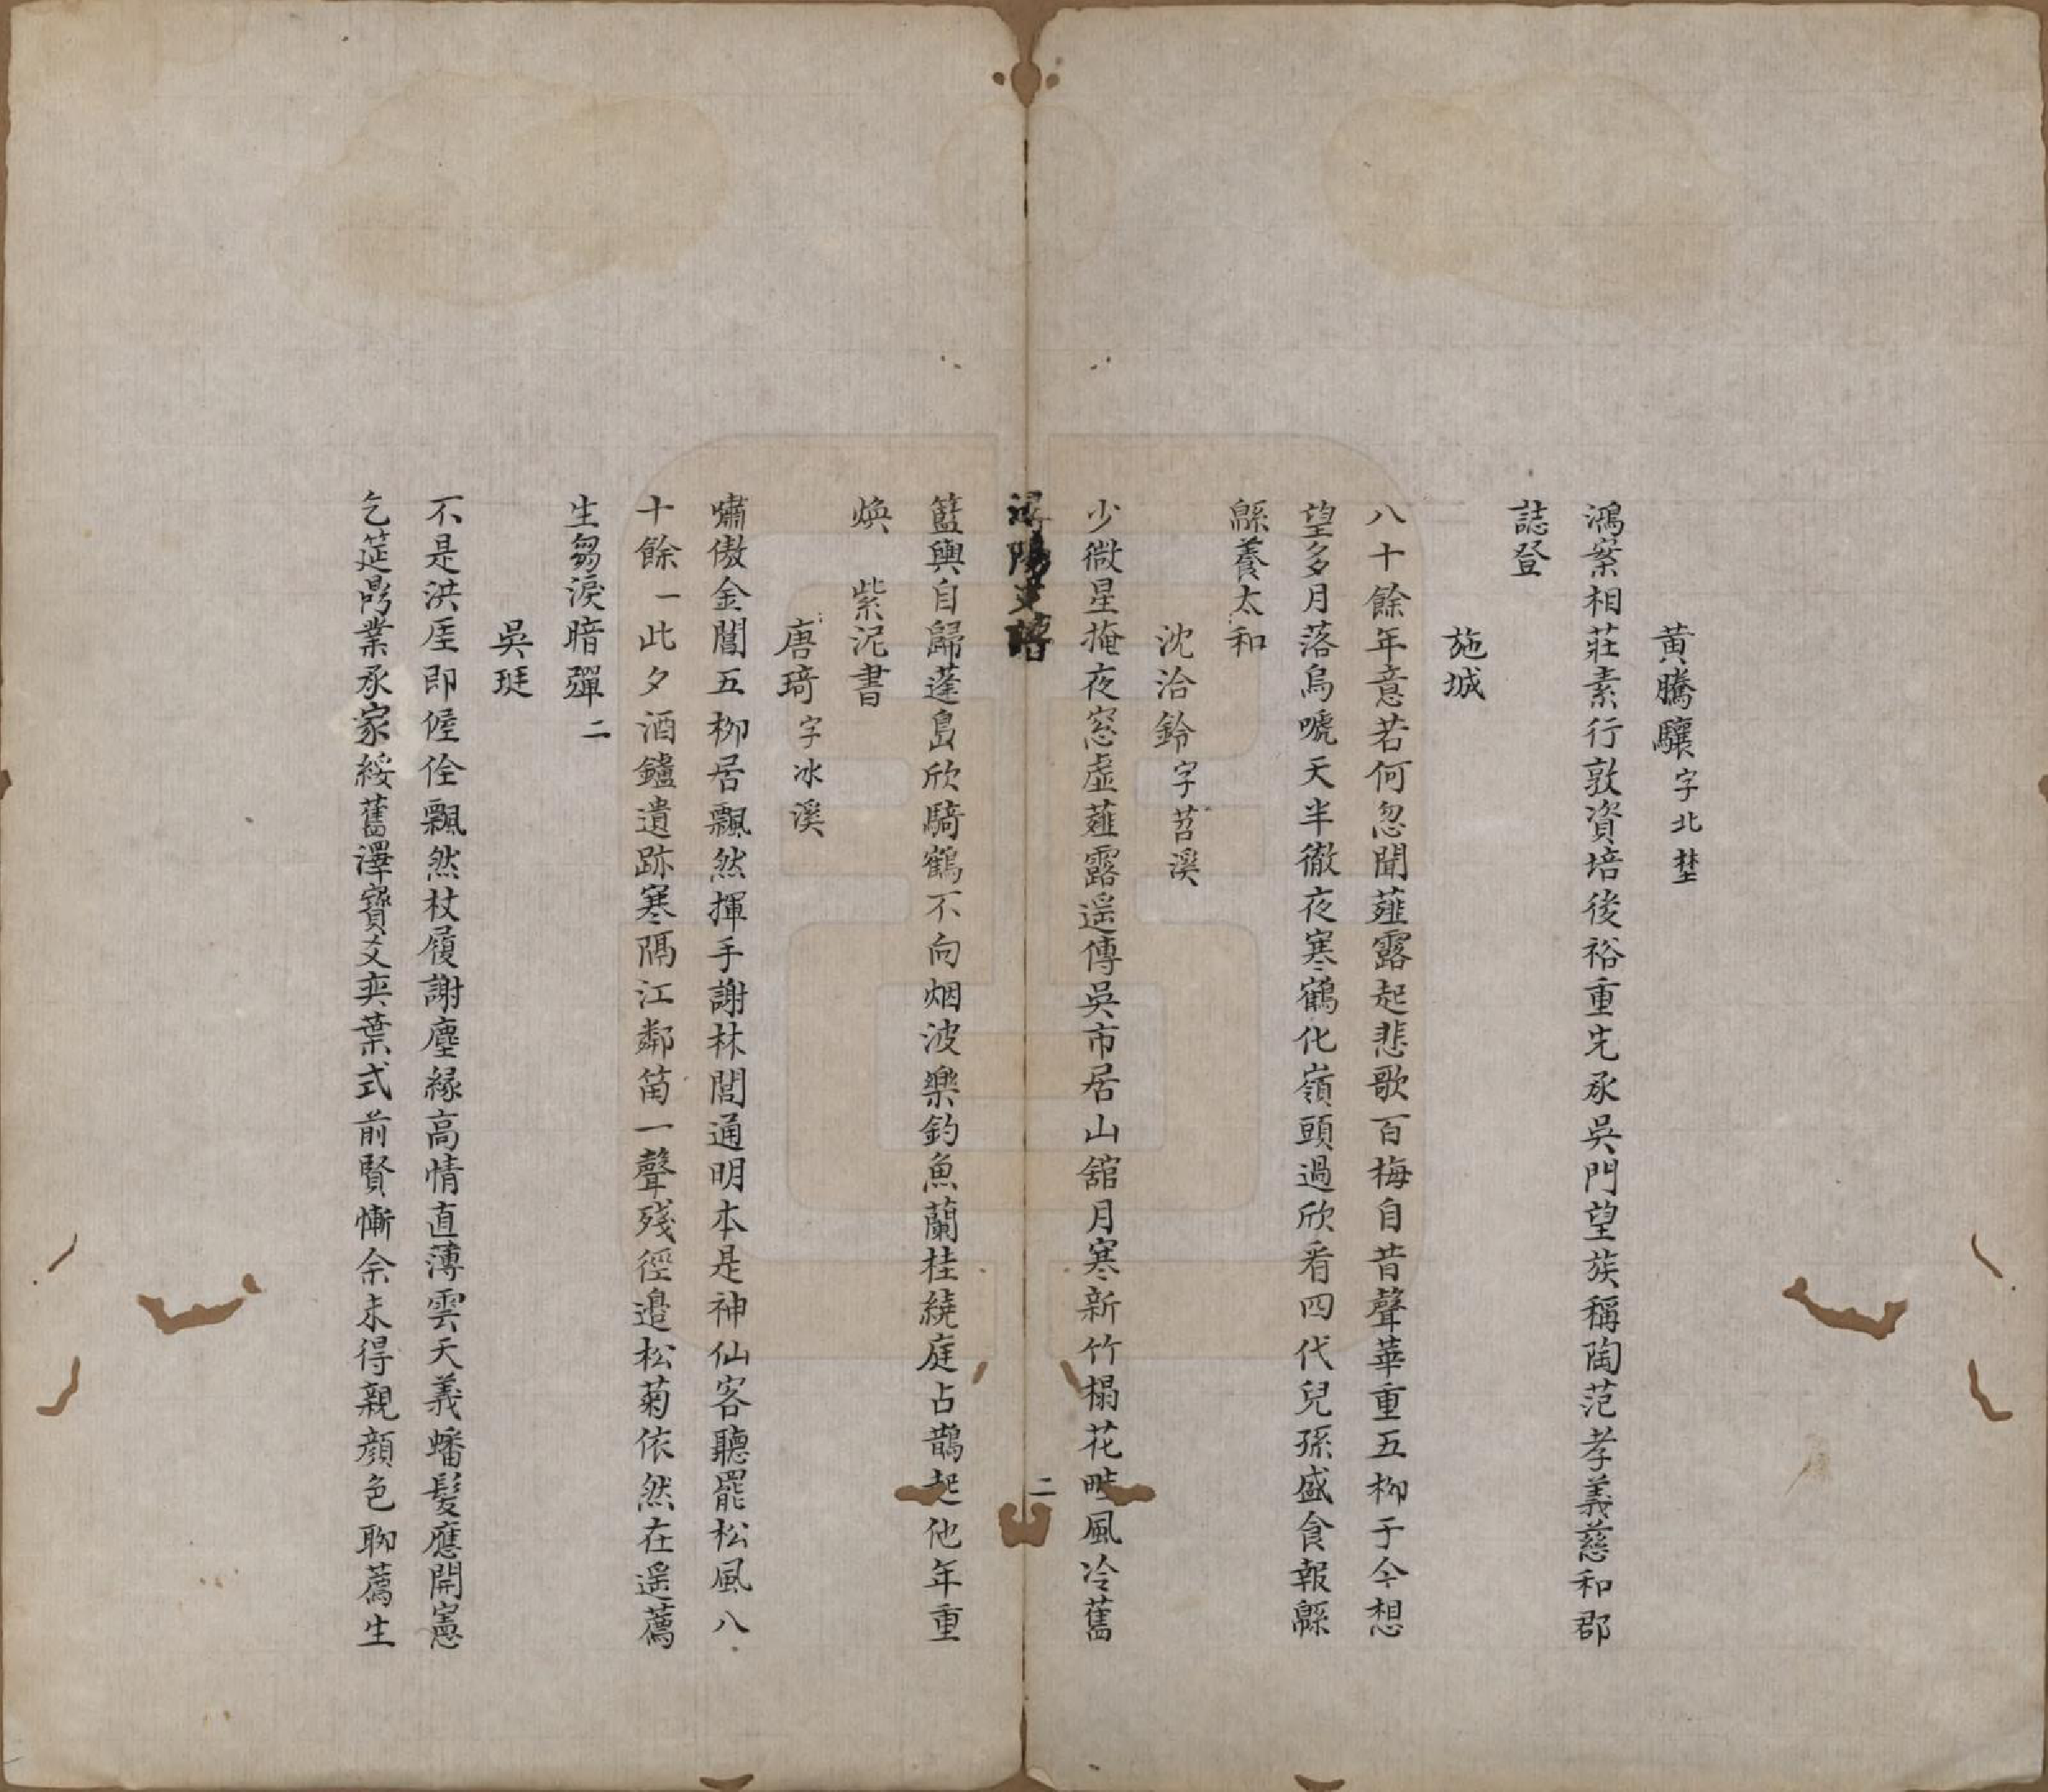 黄騰驤字北埜
鴻案相莊素行敦資培後裕重先承吳門望族稱陶范孝義慈和郡
誌登
施城
八十餘年意若何忽聞薤露起悲歌百梅自昔聲華重五柳于今想
望多月落烏嗁天半徹夜寒鶴化嶺頭過欣看四代兒孫盛食報緜
緜養太和
沈洽鈴字苕溪
少微星掩夜窓虛薤露遥傳吳市居山舘月寒新竹榻花畦風冷舊
潯陽支譜
二
籃輿自歸蓬島欣騎鶴不向烟波樂釣魚蘭桂繞庭占鵲起他年重
煥 紫泥書
唐琦字冰溪
嘯傲金閶五柳居飄然揮手謝林閭通明本是神仙客聽罷松風八
十餘一此夕酒鑪遺跡寒隔江鄰笛一聲殘徑邉松菊依然在遥薦
生芻淚暗彈二
吳珽
不是洪厓即偓佺飄然杖履謝塵緣高情直薄雲天義蟠髪應開寓
乞筵勗業承家綏舊澤寶文奕葉式前賢慚余未得親顔色聊薦生